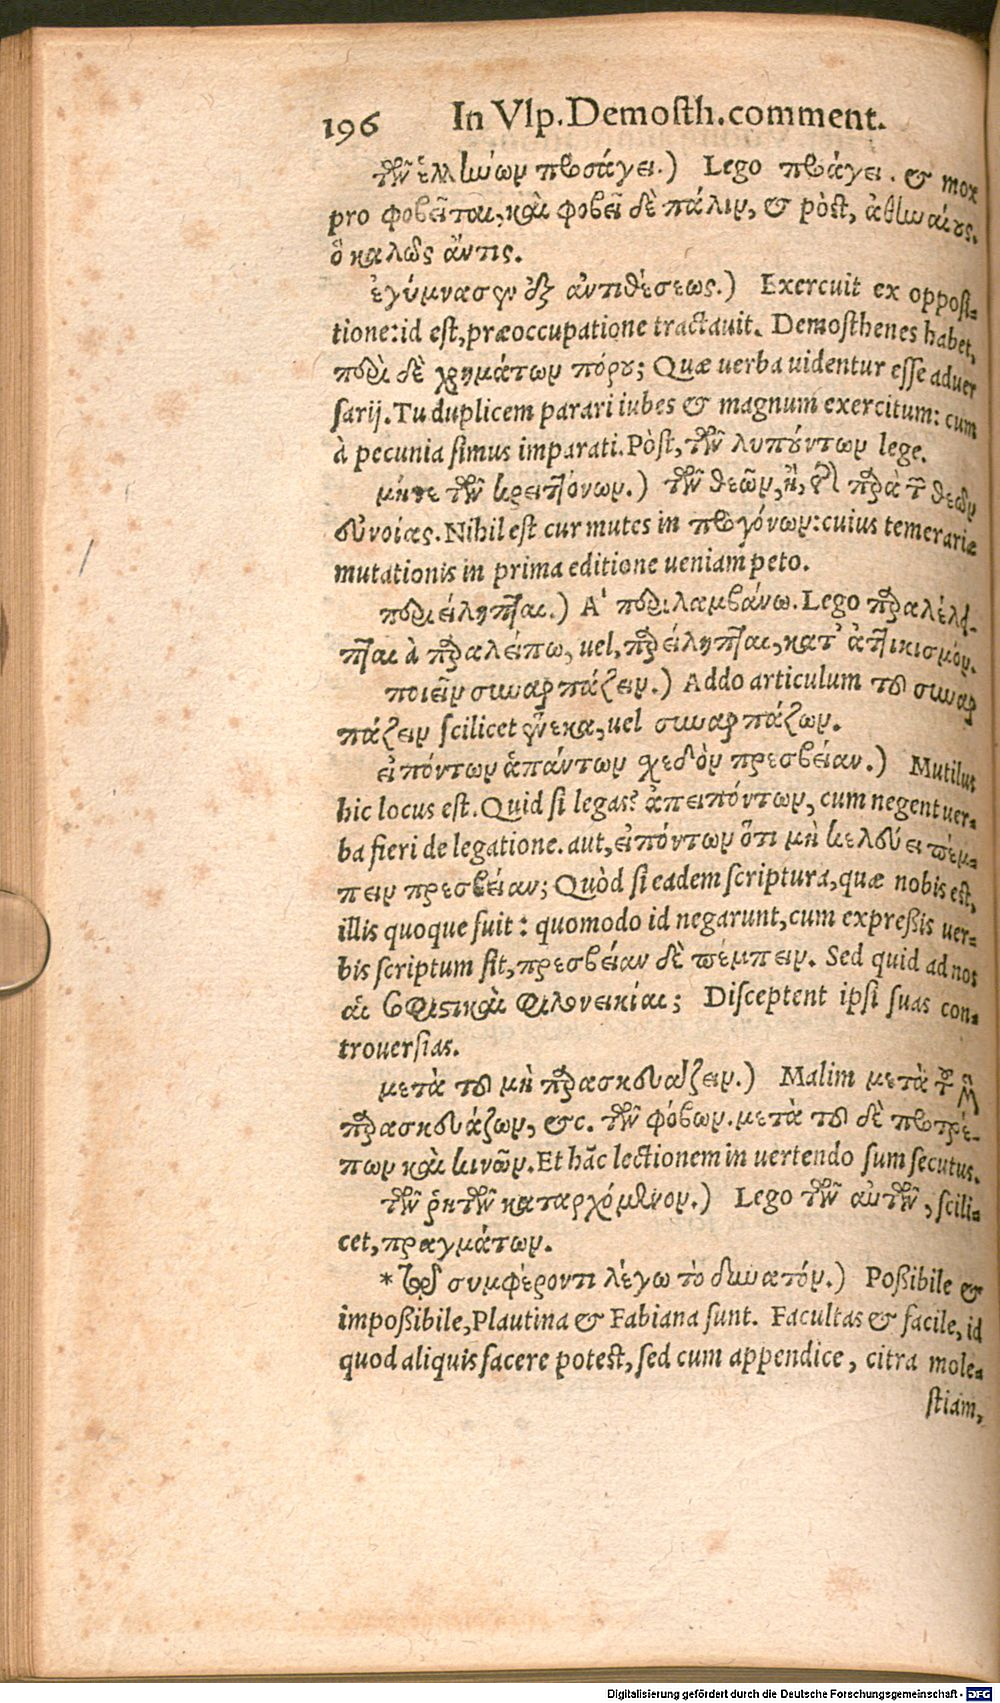 196 In Vlp. Demosth. comment.
τῶν ἑλλήνων προσάγει.) Lego προάγει. & mox
pro φοβεῖται, καὶ φοβεῖ δὲ πάλιν, & pòst, ἀθηναίους.
ὃ καλῶς ἄν τις.
ἐγύμνασεν ἐξ ἀντιθέσεως.) Exercuit ex opposi-
tione: id est, præoccupatione tractauit. Demosthenes habet,
περὶ δὲ χρημάτων πόρου; Quæ uerba uidentur esse aduer
sarij. Tu duplicem parari iubes & magnum exercitum: cum
à pecunia simus imparati. Pòst, τῶν λυπούντων lege.
μήτε τῶν κρειττόνων.) τῶν θεῶν, ἢ, τῆς παρὰ τῶν θεῶν
εὐνοίας. Nihil est cur mutes in προγόνων: cuius temerariæ
mutationis in prima editione ueniam peto.
περιείληπται.) A' περιλαμβάνω. Lego παραλέλει-
πται à παραλείπω, uel, παρείληπται, κατ' ἀττικισμόν.
ποιεῖν συναρπάζειν.) Addo articulum τοῦ συναρ
πάζειν scilicet ἕνεκα, uel συναρπάζων.
εἰπόντων ἁπάντων σχεδὸν πρεσβείαν.) Mutilus
hic locus est. Quid si legas? ἀπειπόντων, cum negent uer-
ba fieri de legatione. aut, εἰπόντων ὅτι μὴ κελεύει πέμ-
πειν πρεσβείαν; Quòd si eadem scriptura, quæ nobis est,
illis quoque fuit: quomodo id negarunt, cum expreßis uer-
bis scriptum sit, πρεσβείαν δὲ πέμπειν. Sed quid ad nos
αἱ σοφιστικαὶ φιλονεικίαι; Disceptent ipsi suas con-
trouersias.
μετὰ τοῦ μὴ παρασκευάζειν.) Malim μετὰ τὸ μὴ
παρασκευάζων, &c. τῶν φόβων. μετὰ τοῦ δὲ προτρέ-
πων καὶ κινῶν. Et hãc lectionem in uertendo sum secutus.
τῶν ῥητῶν καταρχόμενον.) Lego τῶν αὐτῶν, scili-
cet, πραγμάτων.
* τῷ συμφέροντι λέγω τὸ δυνατόν.) Poßibile &
impoßibile, Plautina & Fabiana sunt. Facultas & facile, id
quod aliquis facere potest, sed cum appendice, citra mole-
stiam,
Digitalisierung gefördert durch die Deutsche Forschungsgemeinschaft - DFG